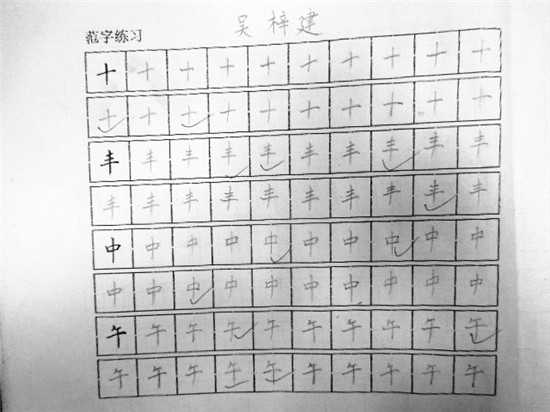 吴梓建
范字练习
十十十十十十十十十十
十十十十十十十十十十
丰丰丰丰丰丰丰丰丰丰
丰丰丰丰丰丰丰丰丰丰
中中中中中中中中中中
中中中中中中中中中中
午午午午午午午午午午
午午午午午午午午午午